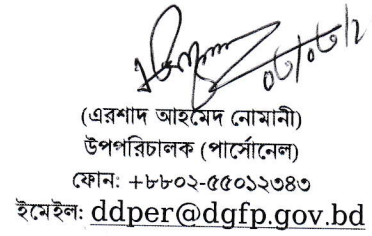 (এরশাদ আহমেদ নোমানী)
উপপরিচালক (পার্সোনেল)
ফোন: +৮৮০২-৫৫০১২৩৪৩
ইমেইল: ddper@dgfp.gov.bd